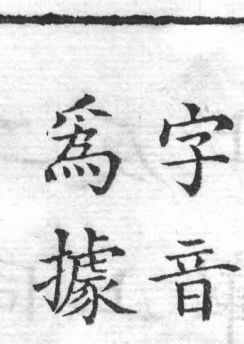 字音
爲據